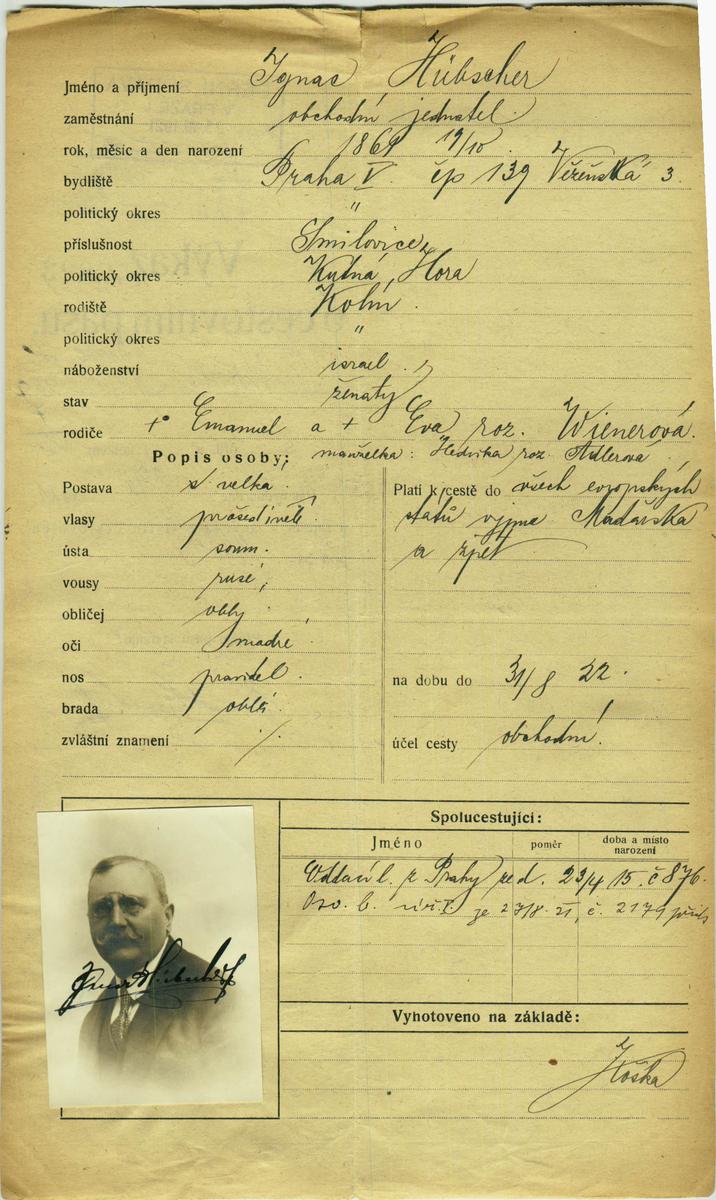 Jméno a příjmení Ignac Hübscher
zaměstnání obchodní jednatel.
rok, měsíc a den narození 1869 19/10
bydliště Praha V. čp 139 Vězeňská 3.
politický okres "
příslušnost Smilovice,
politický okres Kutná Hora
rodiště Kolín.
politický okres "
náboženství israel.
stav ženatý
rodiče + Emanuel a + Eva roz. Wienerová.
manželka: Hedvika roz. Adlerova.
Popis osoby:
Postava velká
vlasy prošedivělé
ústa soum.
vousy rusé,
obličej oblý
oči modré
nos pravidel.
brada oblá
zvláštní znamení ./.
Platí k cestě do všech evropských
států vyjma Maďarska
a zpět
na dobu do 31/8 22.
účel cesty obchodní.
Spolucestující:
Jméno poměr doba a místo narození
z Prahy ze d. 23/4 15. č 876.
Osv. b. ze 27/8. 21, č. 2179
Vyhotoveno na základě: